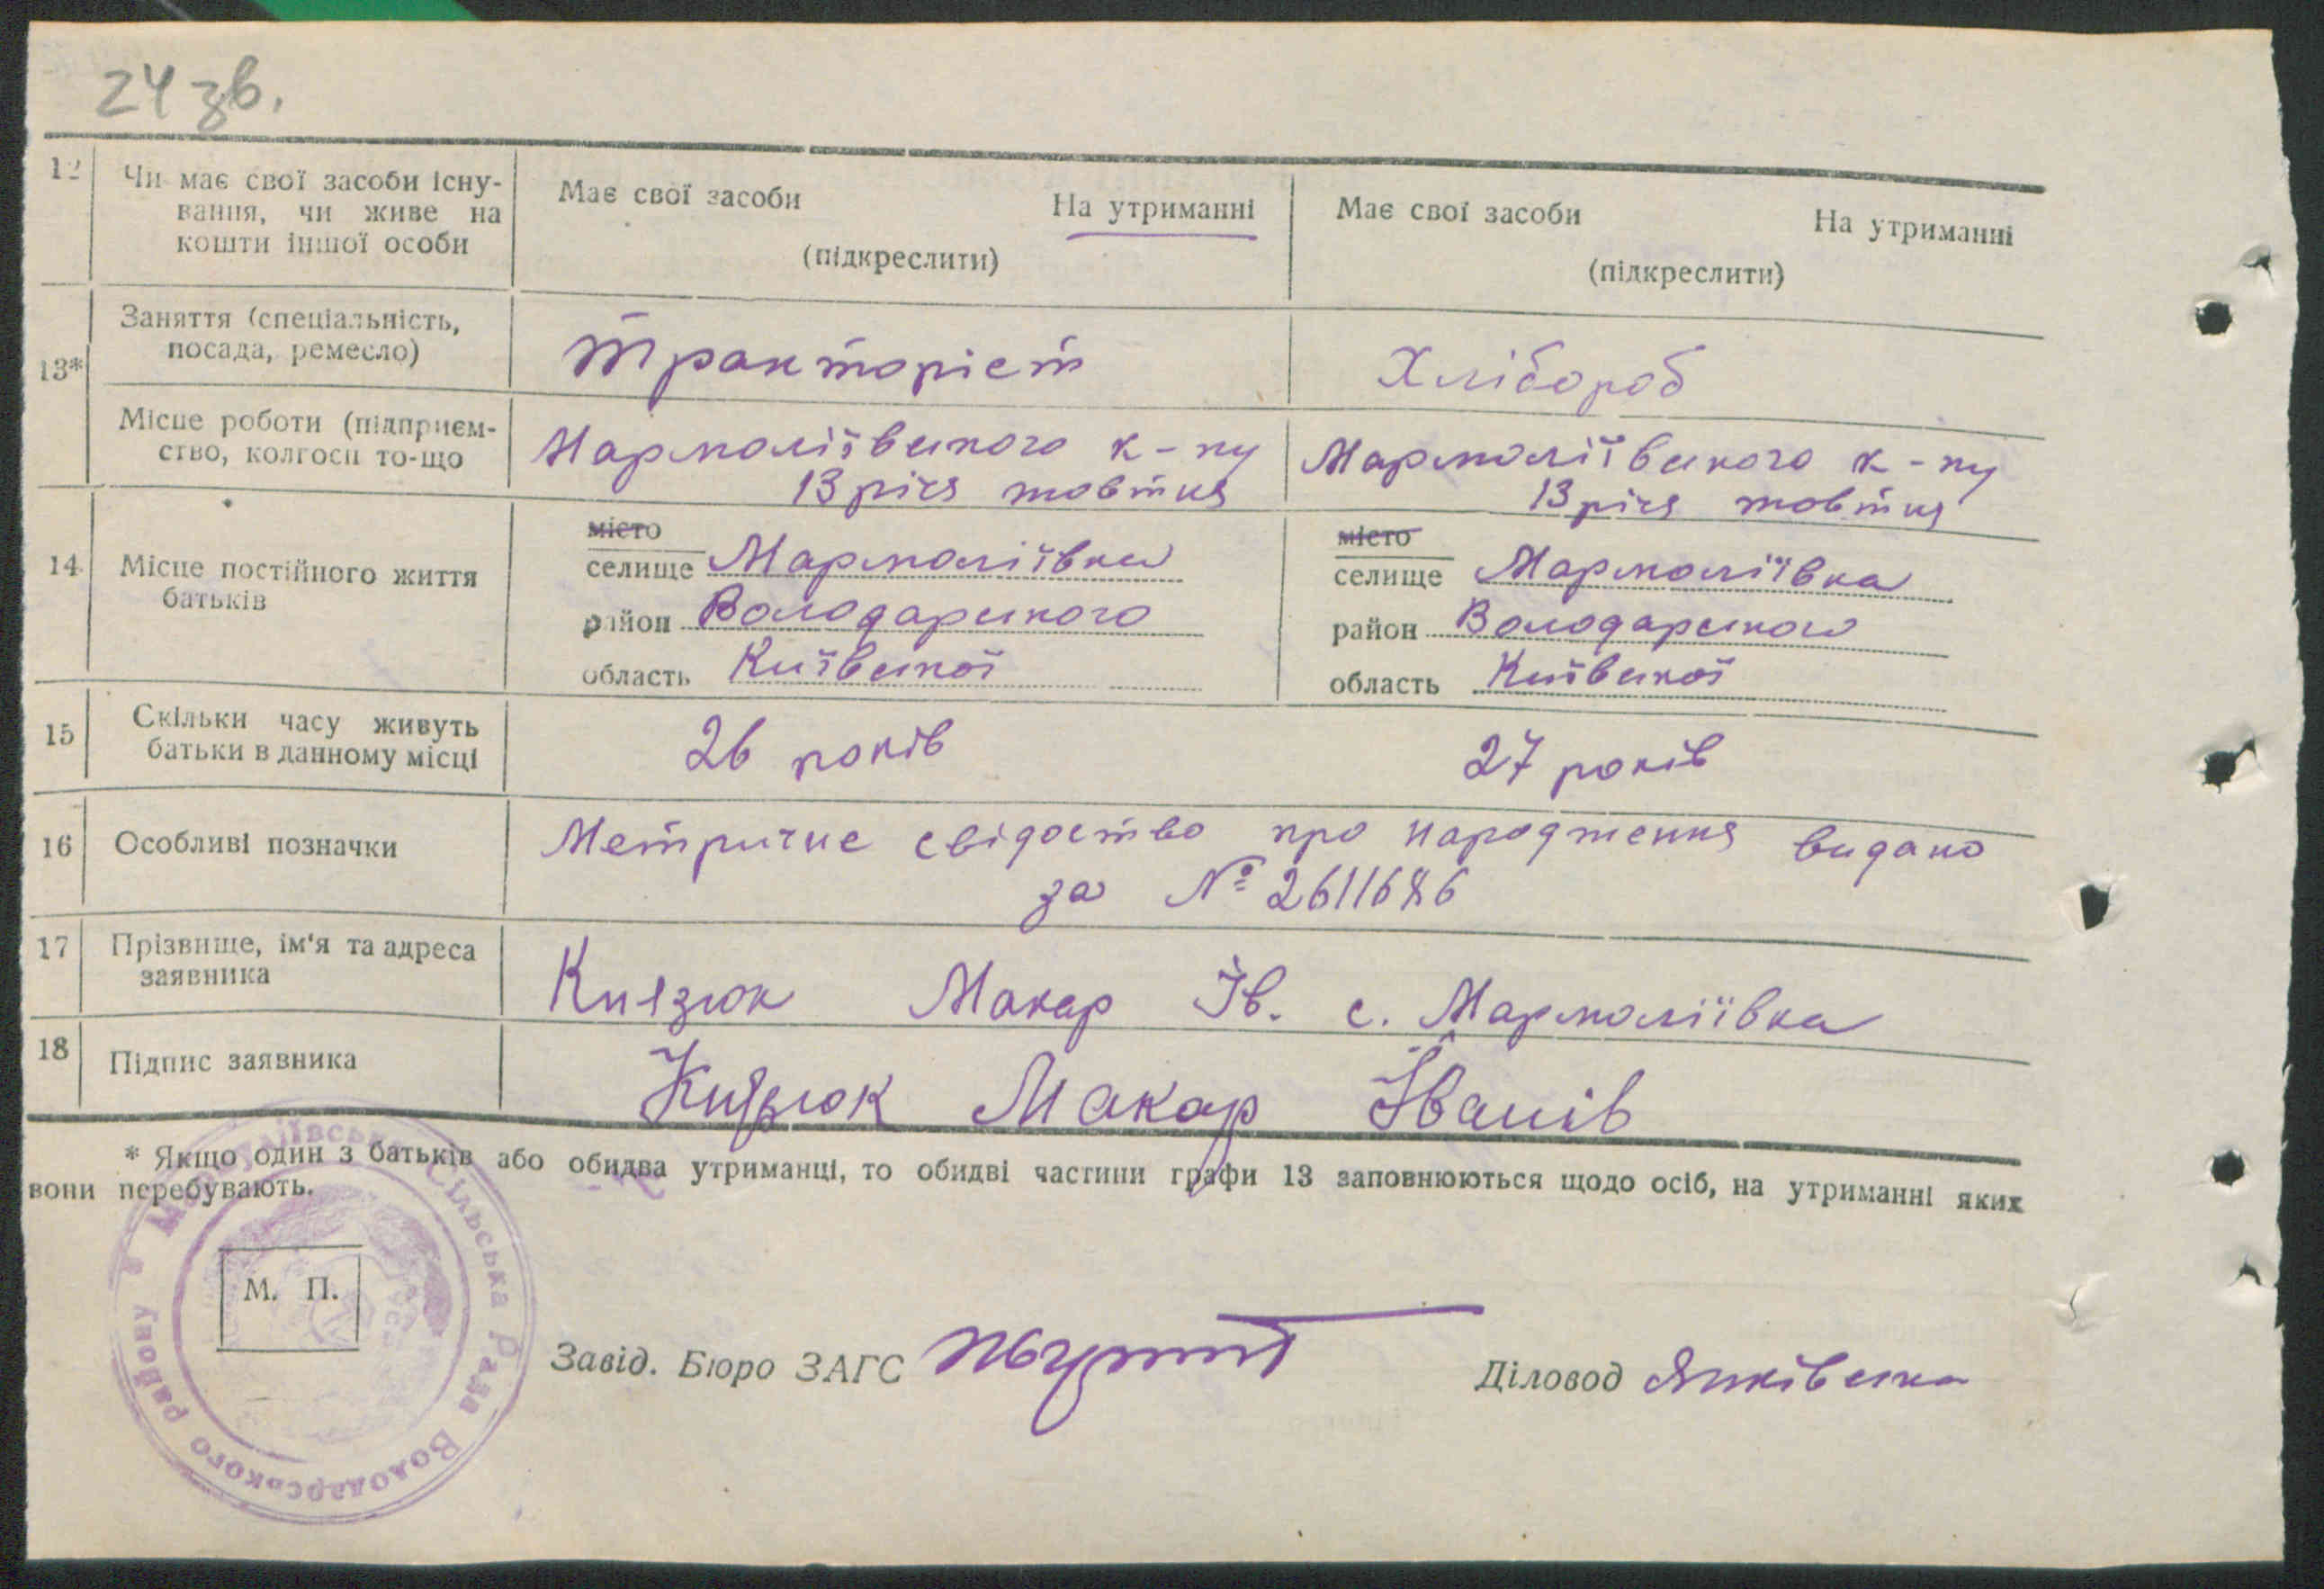 24 зв.
12 Чи має свої засоби існу-
вання, чи живе на
кошти іншої особи
Має свої засоби На утриманні
(підкреслити)
Має свої засоби На утриманні
(підкреслити)
13*
Заняття (спеціальність,
посада, ремесло)
Тракторіст
Хлібороб
Місце роботи (підприєм-
ство, колгосп то-що
Мармоліївського к-пу
13 річя жовтня
Мармоліївського к-пу
13 річя жовтня
14 Місце постійного життя
батьків
місто
селище Мармоліївка
район Володарського
область Київської
місто
селище Мармоліївка
район Володарського
область Київської
15 Скільки часу живуть
батьки в данному місці
26 років
27 років
16 Особливі позначки
Метричне свідоство про народження видано
за № 2611686
17 Прізвище, ім'я та адреса
заявника
Князюк Макар Ів. с. Мармоліївка
18 Підпис заявника
Князюк Макар Іванів
* Якщо один з батьків або обидва утриманці, то обидві частини графи 13 заповнюються щодо осіб, на утриманні яких
вони перебувають.
М. П.
Сільська Рада Володарського району
Завід. Бюро ЗАГС
Діловод